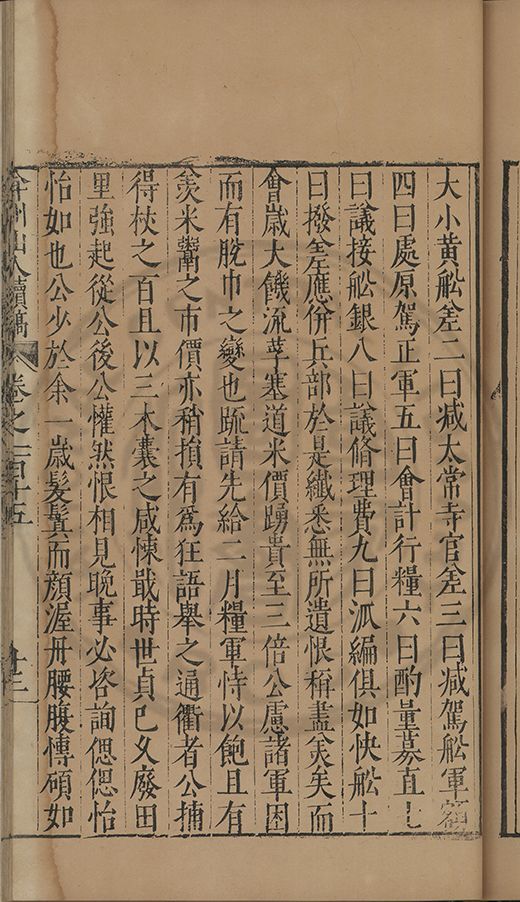 大小黃舩差二曰減太常寺官差三曰減駕舩軍額
四曰處原駕正軍五曰會計行糧六曰酌量募直七
曰議接舩銀八曰議脩理費九曰派編俱如快舩十
曰撥差應併兵部於是纖悉無所遺恨稱盡羙矣而
會歲大饑流莩塞道米價踴貴至三倍公慮諸軍困
而有脫巾之變也䟽請先給二月糧軍恃以飽且有
羨米鬻之市價亦稍損有爲狂語舉之通衢者公捕
得杖之百且以三木囊之咸悚戢時世貞已久廢田
里強起從公後公懽然恨相見晚事必咨詢偲偲怡
怡如也公少於余一歲髮鬒而顔渥丹腰腹慱碩如
弇州山人續稿 卷之一百十五 十三